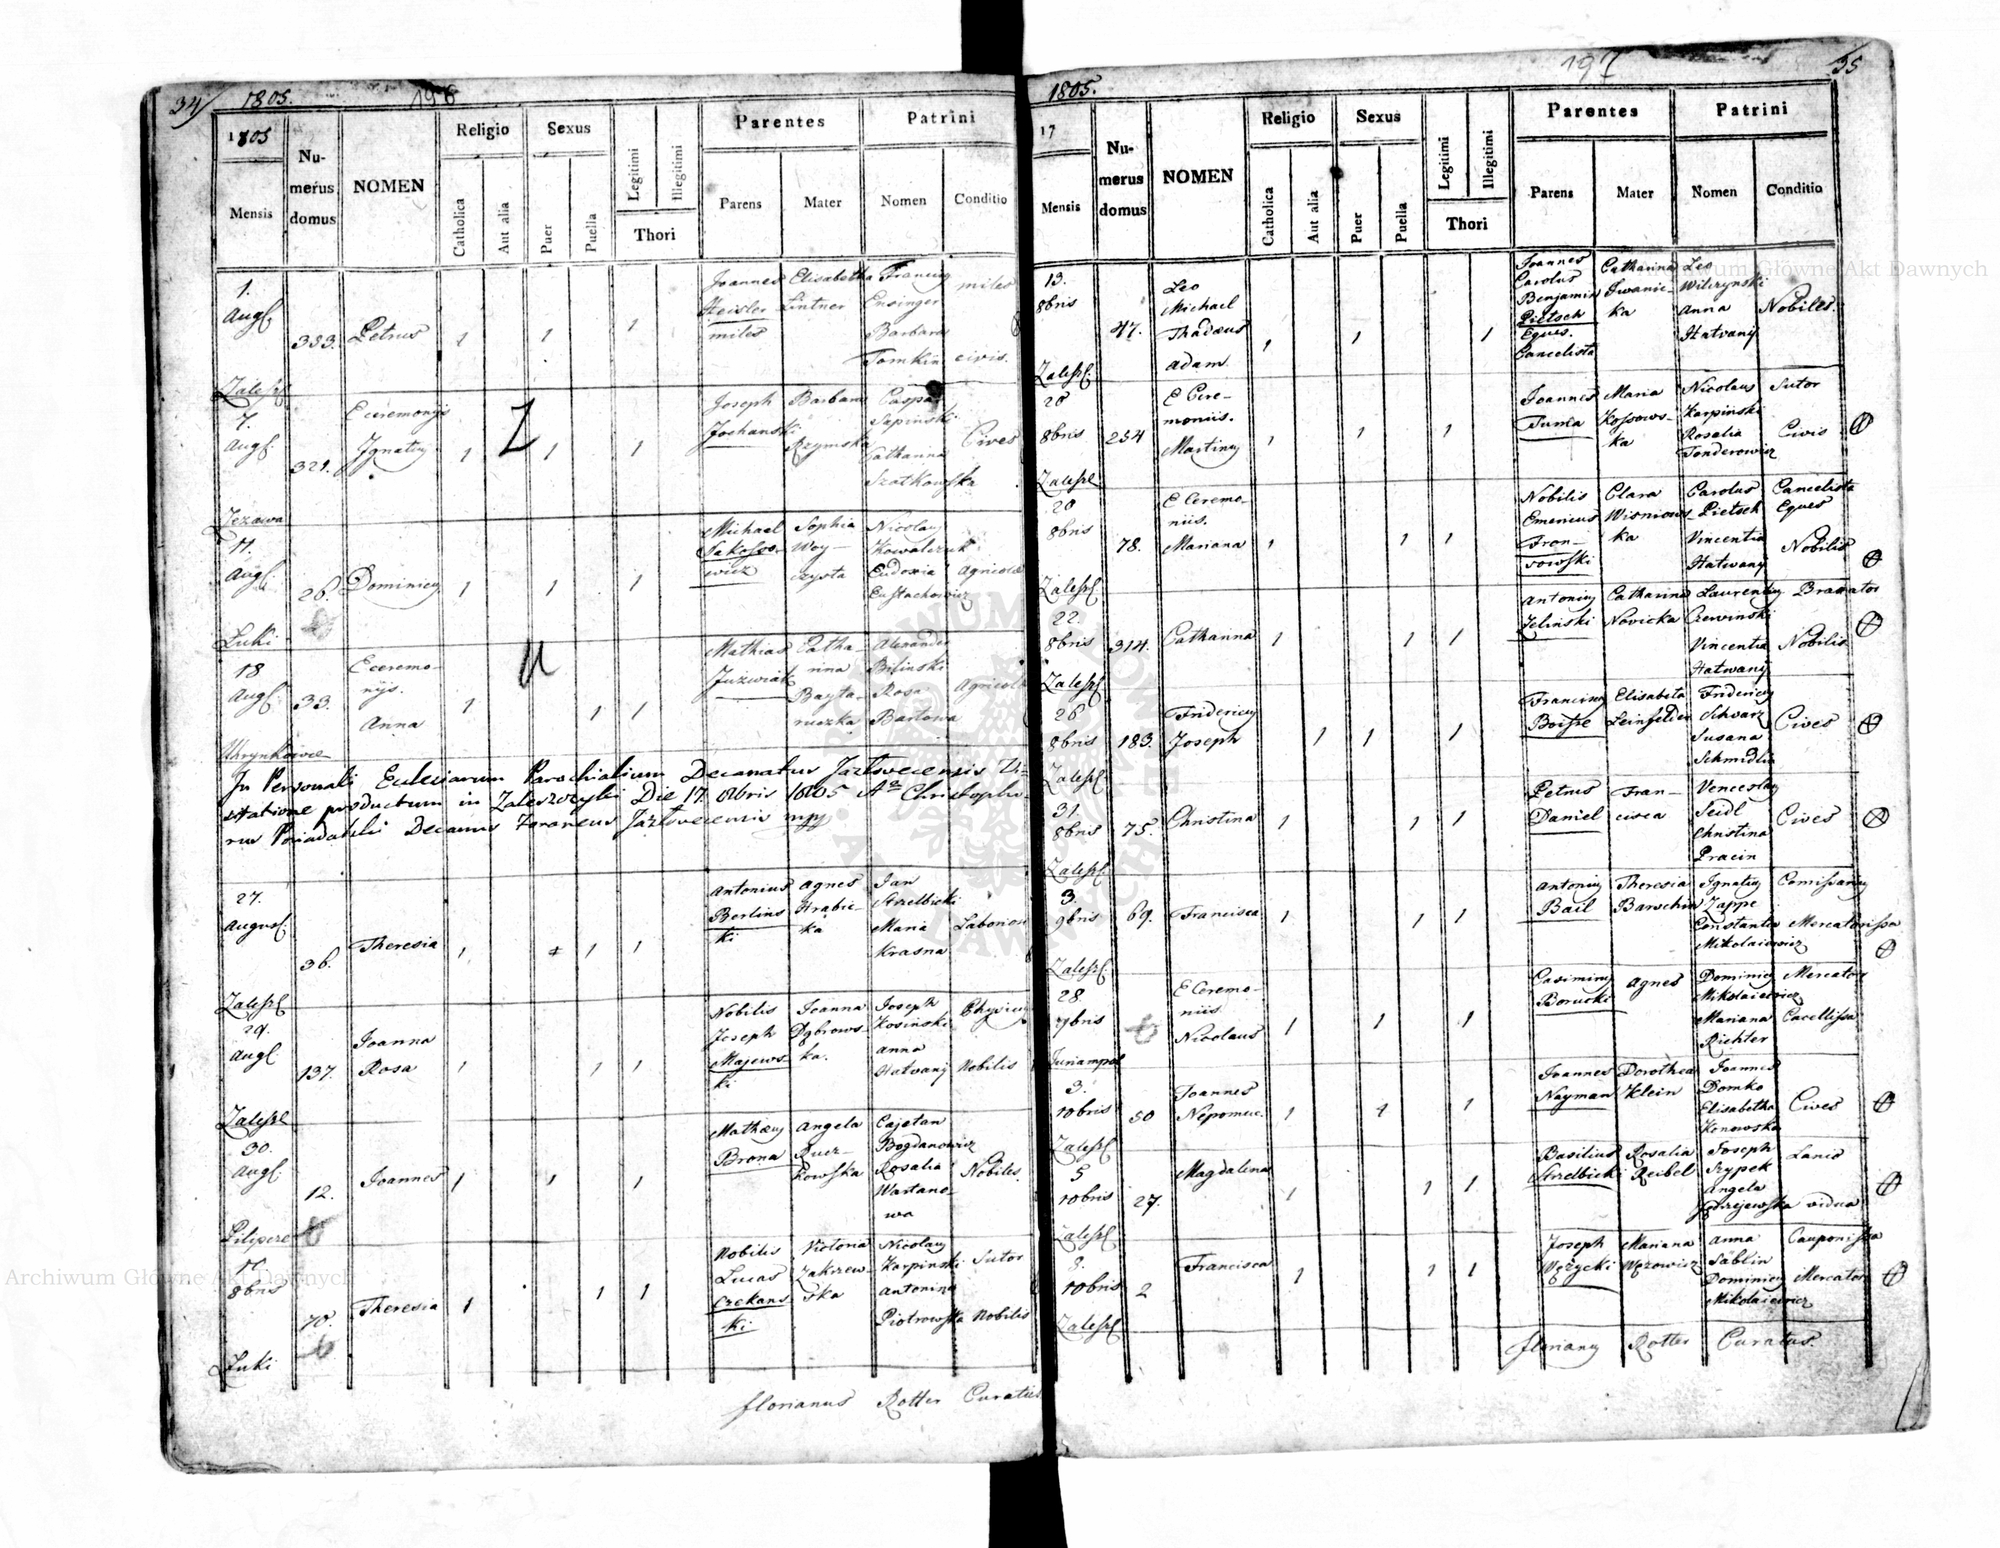 34/ 1805. 196
1805
Mensis
Nu-
merus
domus
NOMEN
Religio
Catholica
Aut alia
Sexus
Puer
Puella
Legitimi
Illegitimi
Thori
Parentes
Parens
Mater
Patrini
Nomen
Conditio
1.
Augl.
Zaleszl.
383.
Petrus
1 1 1
Joannes
Heisler
miles
Elisabetha
Lintner
Ensinger
Barbara
Tomkin
miles
civis.
7.
Augl.
Jezawa
321.
E ceremonijs
Ignatiy
Z
1 1 1
Joseph
Jochanski
Barbara
Rzymska
Caspar
Sapinski
Catharina
Szatkowska
Cives
11.
Augl.
Luki
26.
Dominicy
1 1 1
Michael
Jakoso-
wicz
Sophia
Woy-
czysta
Nicolay
Kowalczuk
Eudoxia
Eustachowicz
Agricolæ
18
Augl.
Uhrynkowce
33.
E ceremo-
nijs.
Anna
1 1 1
Mathias
Juzwiak
Catha-
rina
Bayta-
ruczka
Alexander
Bilinski
Rosa
Bartowa
Agricolæ
In Personali Ecclesiarum Parochialium Decanatus Jazlovecensis Vi-
sitatione productum in Zaleszczyki Die 17. 8bris 1805 Aº Christopho-
rus Decanus Foraneus Jazlovecensis mpp
27.
August.
Zaleszl
36.
Theresia
1 1 1
Antonius
Berlins
ki
Agnes
Hrabic-
ka
Jan
Strzelbicki
Maria
Krasna
29.
Augl
Zaleszl
137.
Joanna
Rosa
1 1 1
Nobilis
Joseph
Majews-
ki
Joanna
Dąbrows-
ka.
Joseph
Kosinski
Anna
Hatvanj
Physicus
Nobilis
30.
Augl.
Pilipcze
12.
Joannes
1 1 1
Mathæus
Brona
Angela
Rucz-
kowska
Cajetan
Bogdanowicz
Rosalia
Wartano-
wa
Nobiles.
8bris
Luki
70.
Theresia
1 1 1
Nobilis
Lucas
Czekans
ki
Victoria
Zakrzew-
ska
Nicolay
Karpinski
Antonina
Piotrowska
Sutor
Nobilis
florianus Rotter Curatus
1805. 197 35
17
Mensis
Nu-
merus
domus
NOMEN
Religio
Catholica
Aut alia
Sexus
Puer
Puella
Legitimi
Illegitimi
Thori
Parentes
Parens
Mater
Patrini
Nomen
Conditio
13.
8bris
Zaleszl.
47.
Leo
Michael
Thadæus
Adam.
1 1 1
Joannes
Carolus
Benjamin
Pietsch
Eques.
Cancelista
Catharina
Iwanic-
ka
Leo
Wilczynski
Anna
Hatvanij
Nobiles.
20
8bris
Zaleszl
254
E Cere-
moniis.
Martiny
1 1 1
Joannes
Tunia
Maria
Kossows-
ka
Nicolaus
Karpinski
Rosalia
Tonderowicz
Sutor
Civis
20
8bris
Zaleszl
78.
E Ceremo-
niis.
Mariana
1 1 1
Nobilis
Emericus
Fron-
sowski
Clara
Wisniows-
ka
Carolus
Pietsch
Vincentia
Hatwanij
Cancelista
Eques
Nobilis
22.
8bris
Zaleszl
314.
Catharina
1 1 1
Antoniy
Zelinski
Catharina
Novicka
Laurentiy
Czerwinski
Vincentia
Hatwanij
Nobilis
26
8bris
Zaleszl.
183.
Fridericy
Joseph
1 1 1
Franciscy
Elisabeta
Leinfelder
Fridericy
Schvarz
Susana
Schmidlin
Cives
31.
8bris
Zaleszl.
75.
Christina
1 1 1
Petrus
Daniel
Fran-
cisca
Venceslay
Seidl
Christina
Pracin
Cives
3.
9bris
Zaleszl.
69.
Francisca
1 1 1
Antoniy
Bail
Theresia
Barschin
Ignatiy
Zappe
Constantia
Mikolaiewicz
Comissariy
Mercatorissa
28.
9bris
E Ceremo-
niis
Nicolaus
1 1 1
Casimiry
Borucki
Agnes
Dominicy
Mikolaiewicz
Mariana
Richter
Mercator
3.
10bris
Zaleszl
50
Joannes
Nepomuc.
1 1 1
Joannes
Nayman
Dorothea
Klein
Joannes
Domko
Elisabetha
Konowska
Cives
5
10bris
Zaleszl
27.
Magdalena
1 1 1
Basilius
Strzelbicki
Rosalia
Reibel
Joseph
Szypek
Angela
Lanio
vidua
8.
10bris
Zaleszl
2
Francisca
1 1 1
Joseph
Wężycki
Mariana
Wązowicz
Anna
Sablin
Dominicy
Mikolaiewicz
Cauponissa
Mercator
florianij Rotter Curatus.
Archiwum Główne Akt Dawnych
Archiwum Główne Akt Dawnych